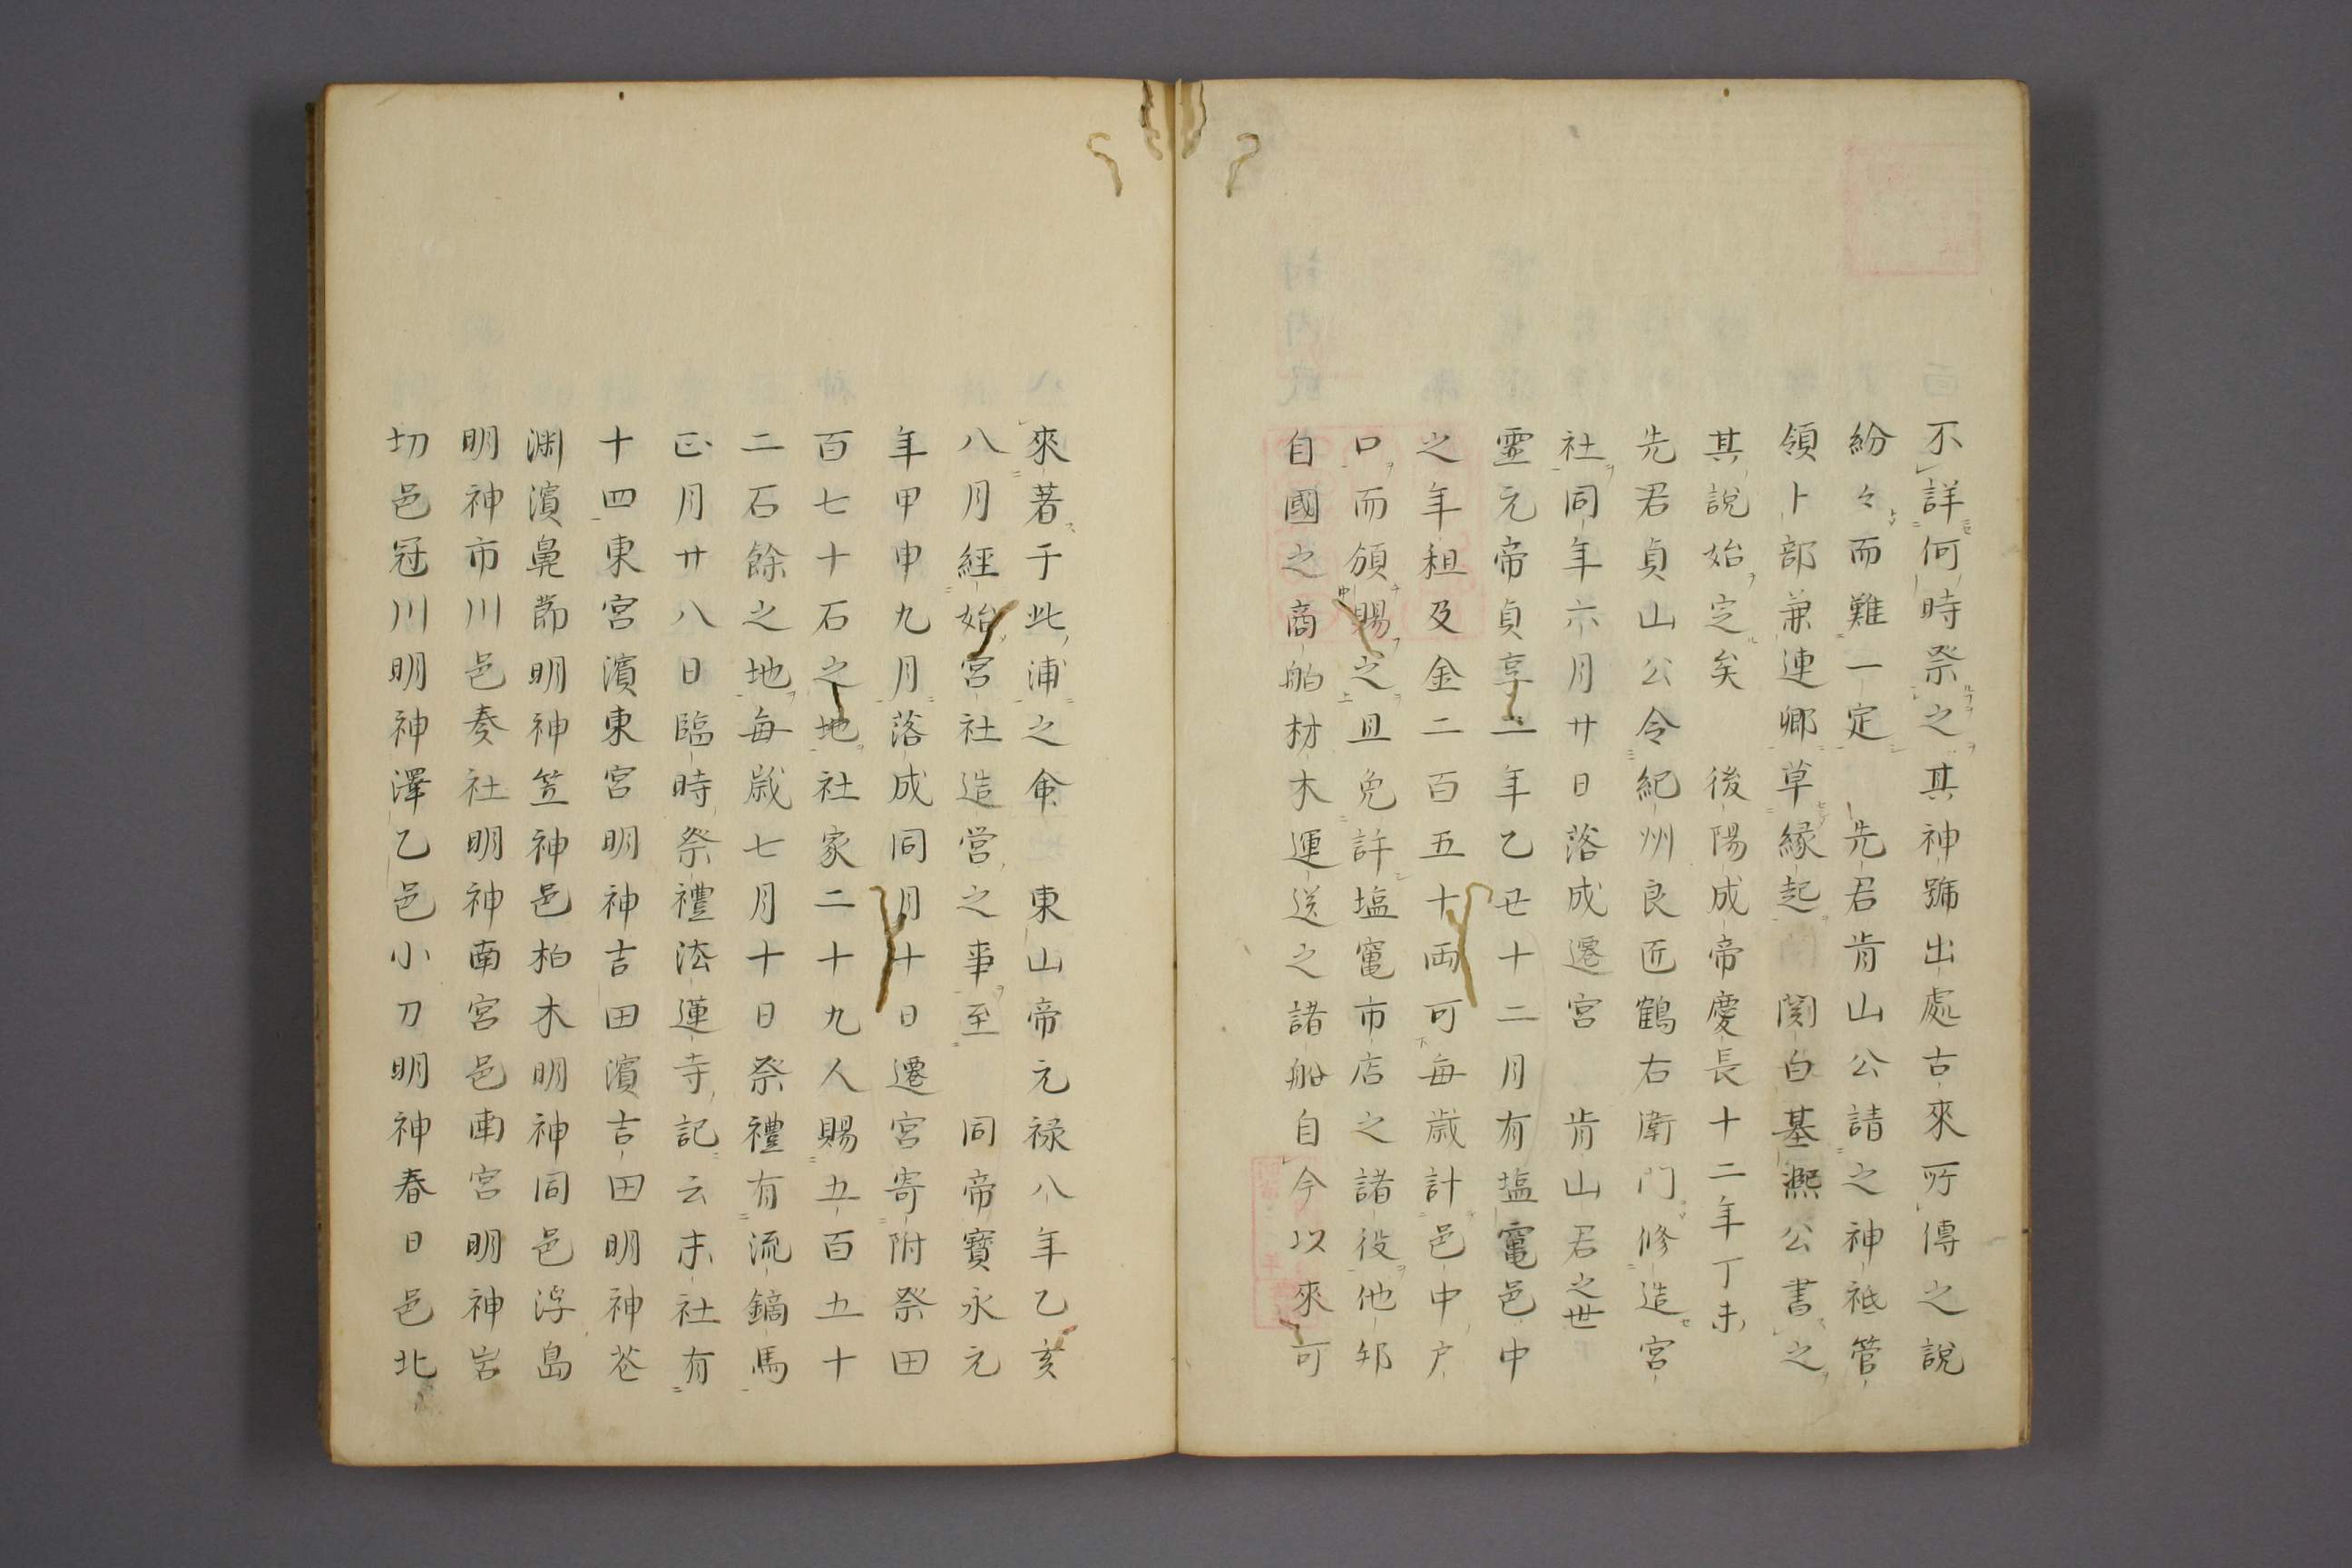 不詳何時祭之其神號出處古來所傳之說
紛々而難一定　先君肯山公請之神祇管
領卜部兼連卿草縁起　関白基凞公書之
其說始定矣　後陽成帝慶長十二年丁未
先君貞山公令紀州良匠鶴右衛門修造宮
社同年六月廿日落成遷宮　肯山君之世
霊元帝貞享二年乙丑十二月有塩竃邑中
之年租及金二百五十両可毎歳計邑中戸
口而頒賜之且免許塩竃市店之諸役他邦
自國之商舶材木運送之諸船自今以來可
來著于此浦之命　東山帝元禄八年乙亥
八月經始宮社造営之事至　同帝寳永元
年甲申九月落成同月十日遷宮寄附祭田
百七十石之地社家二十九人賜五百五十
二石餘之地毎歳七月十日祭禮有流鏑馬
正月廿八日臨時祭禮法蓮寺記云末社有
十四東宮濵東宮明神吉田濵吉田明神苍
渊濵鼻節明神笠神邑柏木明神同邑浮島
明神市川邑奏社明神南宮邑南宮明神岩
切邑冠川明神澤乙邑小刀明神春日邑北